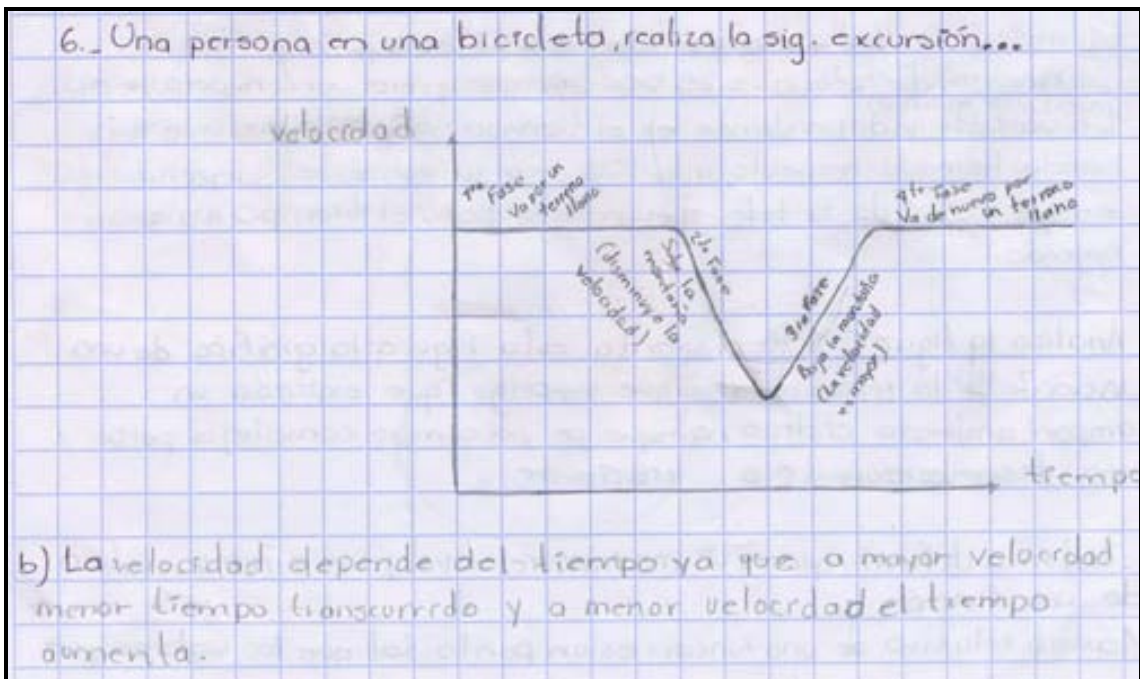 6.- Una persona en una bicicleta, realiza la sig. excursión...
velocidad
1ra Fase
Va por un
terreno
llano
2da Fase
Sube la
montaña
(disminuye la
velocidad)
3ra Fase
Baja la montaña
(La velocidad
4ta Fase
Va de nuevo por
un terreno
llano
tiempo
b) La velocidad depende del tiempo ya que a mayor velocidad
menor tiempo transcurrido y a menor velocidad el tiempo
aumenta.